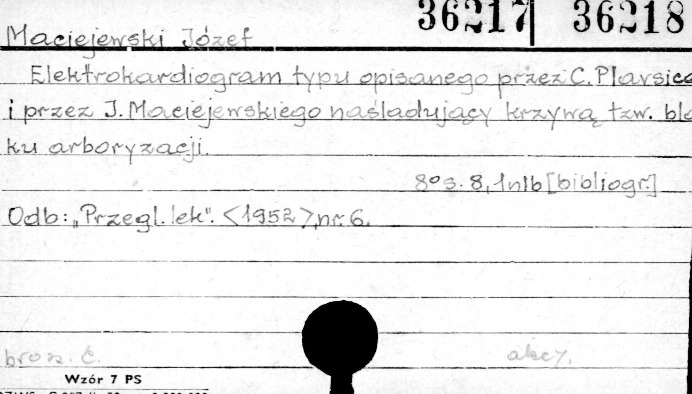 36217 36218
Maciejewski Józef
Elektrokardiogram typu opisanego przez C. Plavsica
i przez J. Maciejewskiego naśladujący krzywą tzw. blo
ku arboryzacji.
8° s. 8, 1nlb [bibliogr.]
Odb: „Przegl. lek". <1952>, nr. 6.
brosz. č. akc7.
Wzór 7 PS